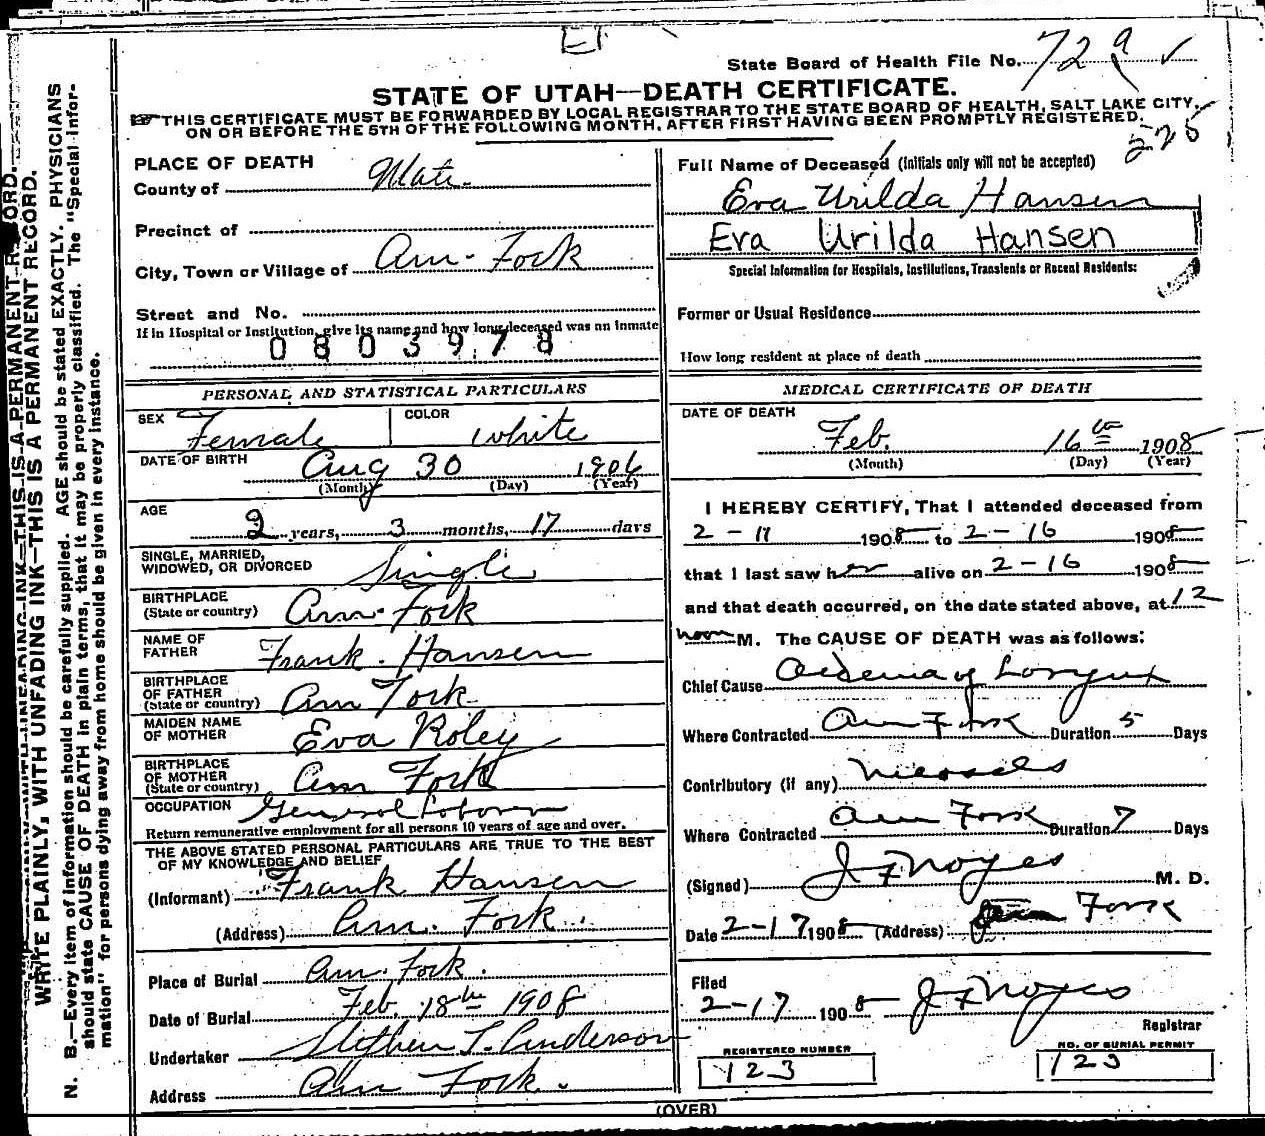 State Board of Health File No. 72 9
STATE OF UTAH—DEATH CERTIFICATE.
THIS CERTIFICATE MUST BE FORWARDED BY LOCAL REGISTRAR TO THE STATE BOARD OF HEALTH, SALT LAKE CITY,
ON OR BEFORE THE 5TH OF THE FOLLOWING MONTH, AFTER FIRST HAVING BEEN PROMPTLY REGISTERED.
225
WRITE PLAINLY, WITH UNFADING INK—THIS IS A PERMANENT RECORD.
N. B.—Every item of information should be carefully supplied. AGE should be stated EXACTLY. PHYSICIANS
should state CAUSE OF DEATH in plain terms, that it may be properly classified. The "Special Infor-
mation" for persons dying away from home should be given in every instance.
PLACE OF DEATH
County of
Precinct of
City, Town or Village of Am. Fork
Street and No.
If in Hospital or Institution, give its name and how long deceased was an inmate
0803978
PERSONAL AND STATISTICAL PARTICULARS
SEX Female COLOR white
DATE OF BIRTH Aug 30 1906
(Month) (Day) (Year)
AGE
2 years, 3 months, 17 days
SINGLE, MARRIED,
WIDOWED, OR DIVORCED Single
BIRTHPLACE
(State or country) Am. Fork
NAME OF
FATHER Frank Hansen
BIRTHPLACE
OF FATHER
(State or country) Am Fork
MAIDEN NAME
OF MOTHER Eva Roley
BIRTHPLACE
OF MOTHER
(State or country) Am Fork
OCCUPATION General Laborer
Return remunerative employment for all persons 10 years of age and over.
THE ABOVE STATED PERSONAL PARTICULARS ARE TRUE TO THE BEST
OF MY KNOWLEDGE AND BELIEF
(Informant) Frank Hansen
(Address) Am. Fork.
Place of Burial Am. Fork.
Date of Burial Feb. 18th 1908
Undertaker Stephen L. Anderson
Address Am Fork.
Full Name of Deceased (Initials only will not be accepted)
Eva Urilda Hansen
Eva Urilda Hansen
Special Information for Hospitals, Institutions, Transients or Recent Residents:
Former or Usual Residence
How long resident at place of death
MEDICAL CERTIFICATE OF DEATH
DATE OF DEATH
Feb. 16th 1908
(Month) (Day) (Year)
I HEREBY CERTIFY, That I attended deceased from
2-11 1908 to 2-16 1908
that I last saw her alive on 2-16 1908
and that death occurred, on the date stated above, at 12
noon M. The CAUSE OF DEATH was as follows:
Chief Cause Oedema of Larynx
Where Contracted Am Fork Duration 5 Days
Contributory (if any) measels
Where Contracted Am Fork Duration 7 Days
(Signed) J F Noyes M. D.
Date 2-17 1908 (Address) Am Fork
Filed
2-17 1908 J F Noyes
Registrar
REGISTERED NUMBER
123
NO. OF BURIAL PERMIT
123
(OVER)